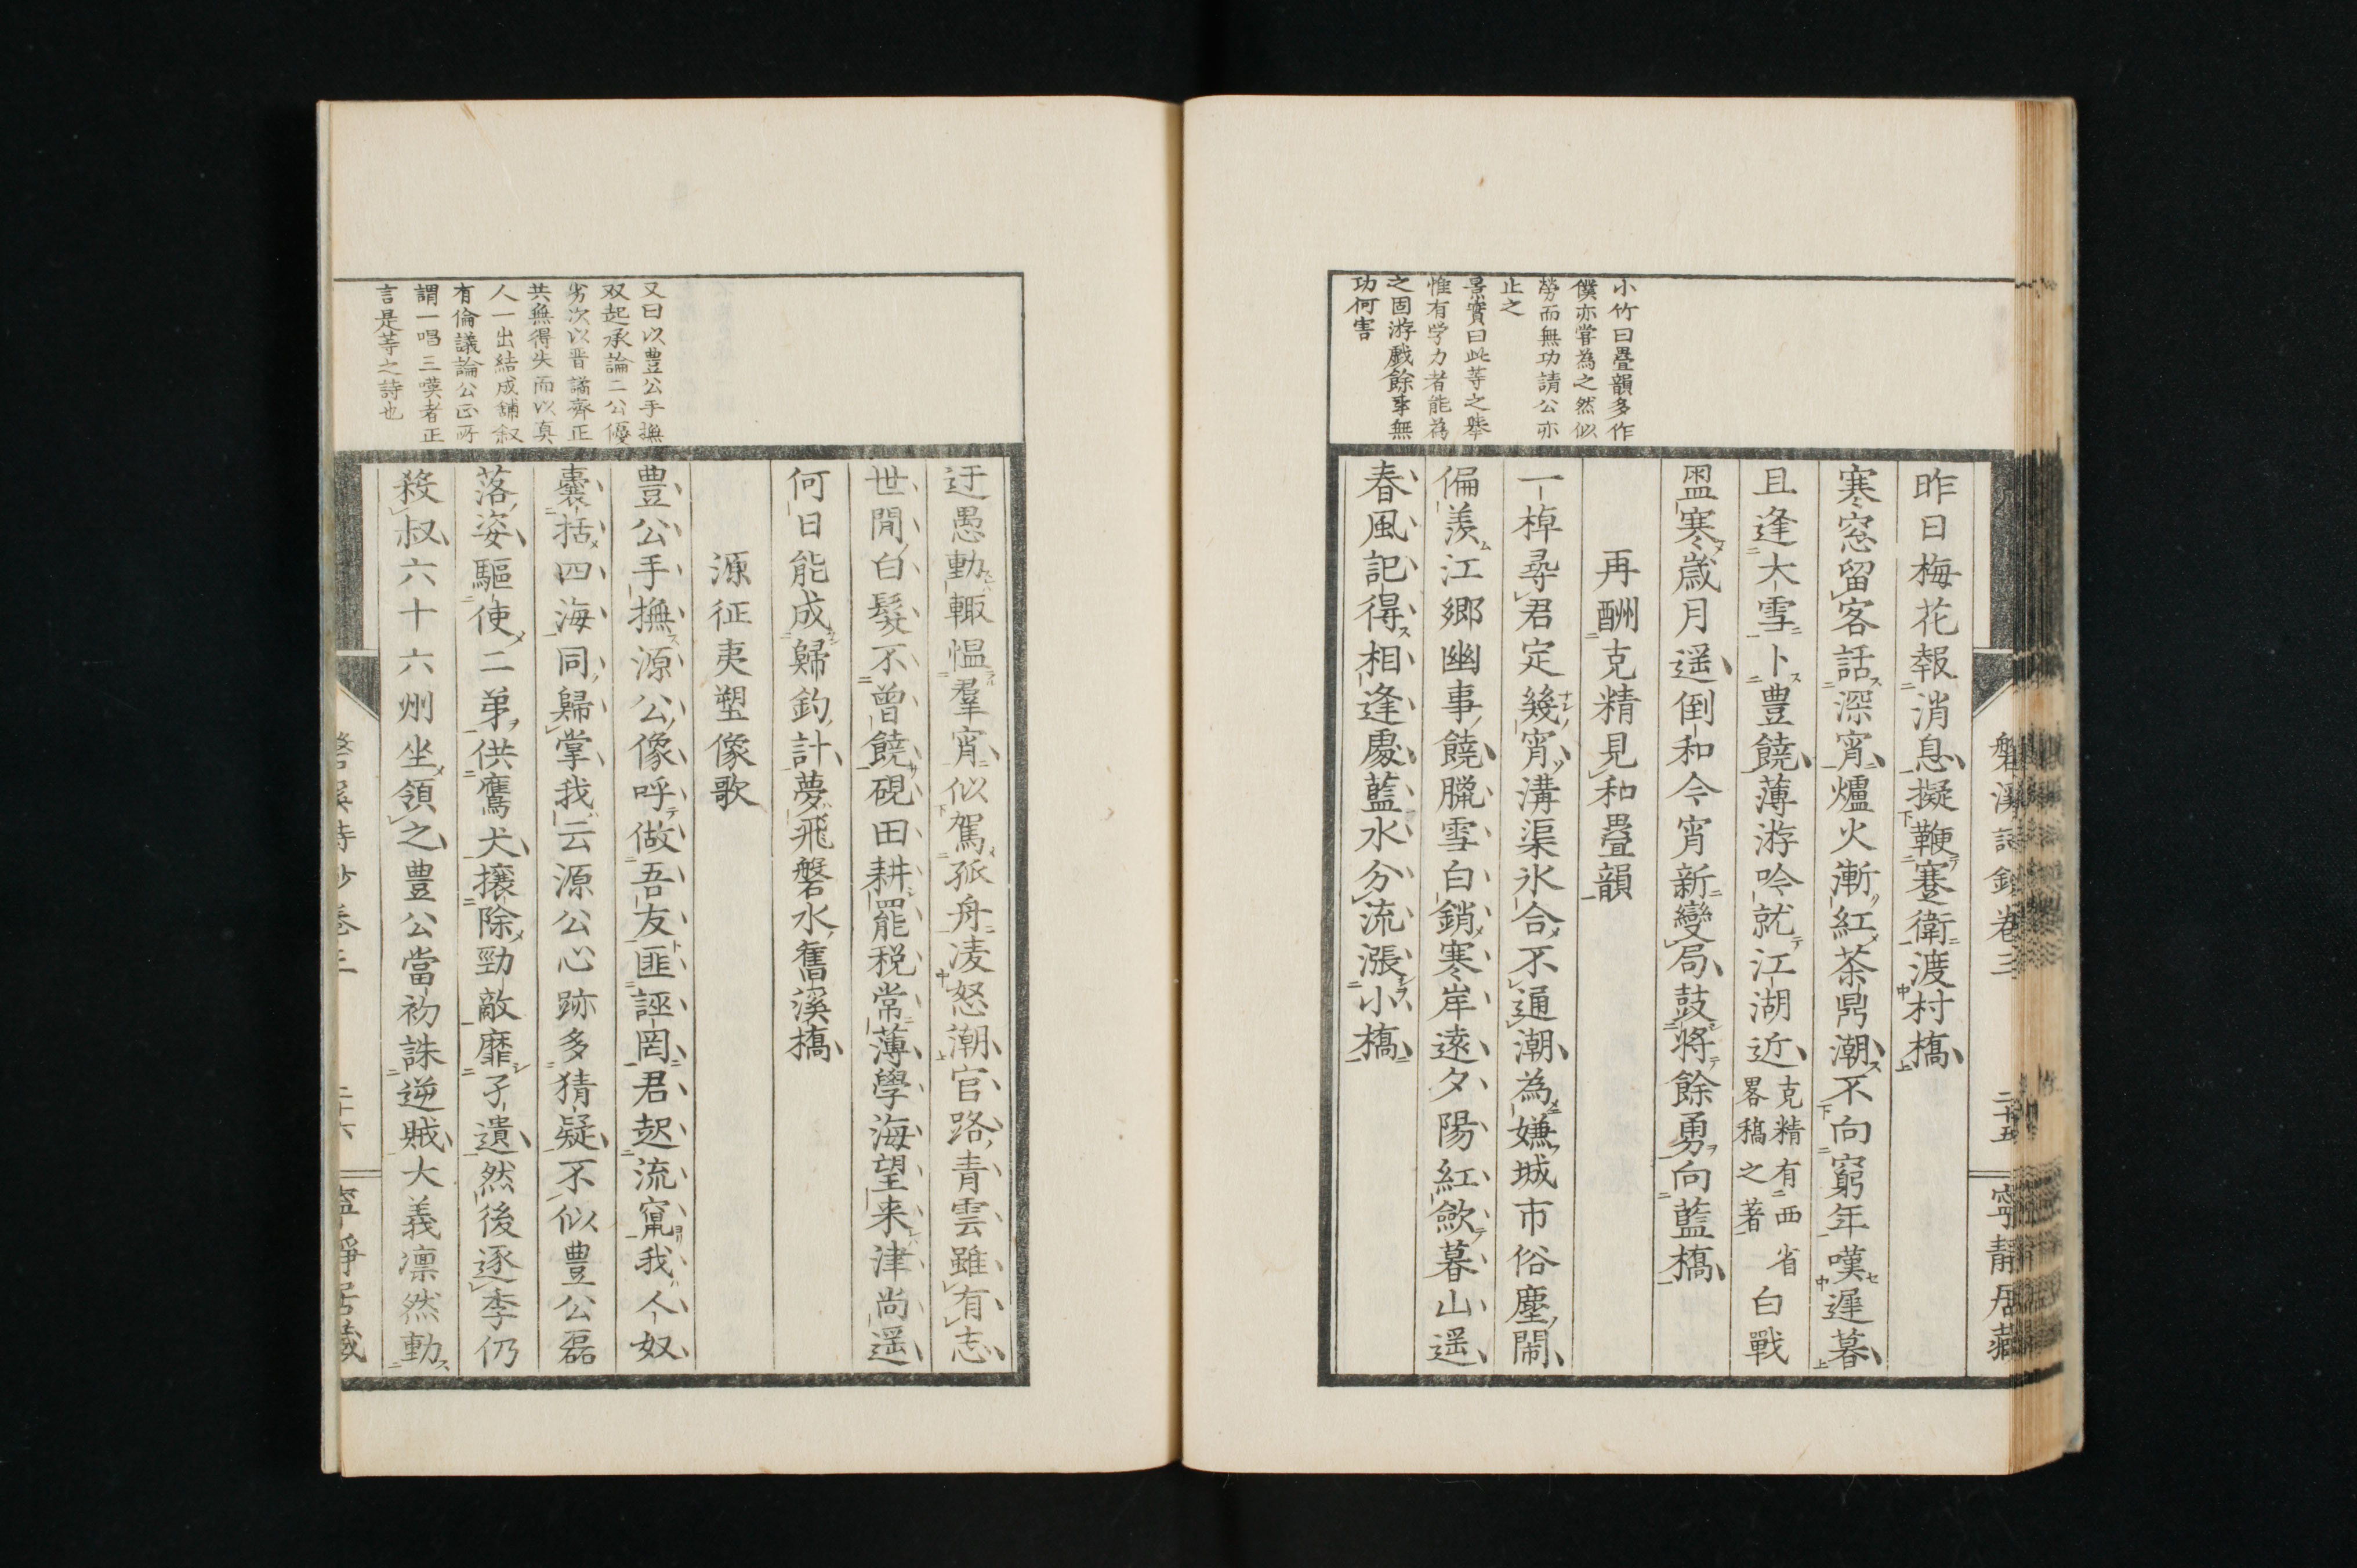 小竹曰畳韻多作
僕亦嘗為之然似
勞而無功請公亦
止之
景實曰此等之挙
惟有学力者能為
之固游戲餘事無
功何害
磐溪詩鈔卷三
二十五
寧靜居藏
昨日梅花報消息擬鞭蹇衛渡村橋
寒窓留客話深宵爐火漸紅茶鼎潮不向窮年嘆遲暮
且逢大雪卜豊饒薄游吟就江湖近克精有西省
畧稿之著白戰
盟寒歳月遥倒和今宵新變局鼓將餘勇向藍橋
再酬克精見和畳韻
一棹尋君定幾宵溝渠氷合不通潮為嫌城市俗塵鬧
偏羨江郷幽事饒臘雪白銷寒岸遠夕陽紅斂暮山遥
春風記得相逢處藍水分流漲小橋
又曰以豊公手撫
双起承論二公優
劣次以晋譎齊正
共無得失而以真
人一出結成鋪叙
有倫議論公正所
謂一唱三嘆者正
言是等之詩也
迂愚動輙慍羣宵似駕孤舟凌怒潮官路青雲雖有志
世間白髮不曾饒硯田耕罷税常薄學海望来津尚遥
何日能成歸釣計夢飛磐水舊溪橋
源征夷塑像歌
豊公手撫源公像呼做吾友匪誣罔君起流竄我人奴
嚢括四海同歸掌我云源公心跡多猜疑不似豊公磊
落姿驅使二弟供鷹犬攘除勁敵靡孑遺然後逐李仍
殺叔六十六州坐領之豊公當初誅逆賊大義凛然動
磐溪詩鈔卷三
二十六
寧靜居藏